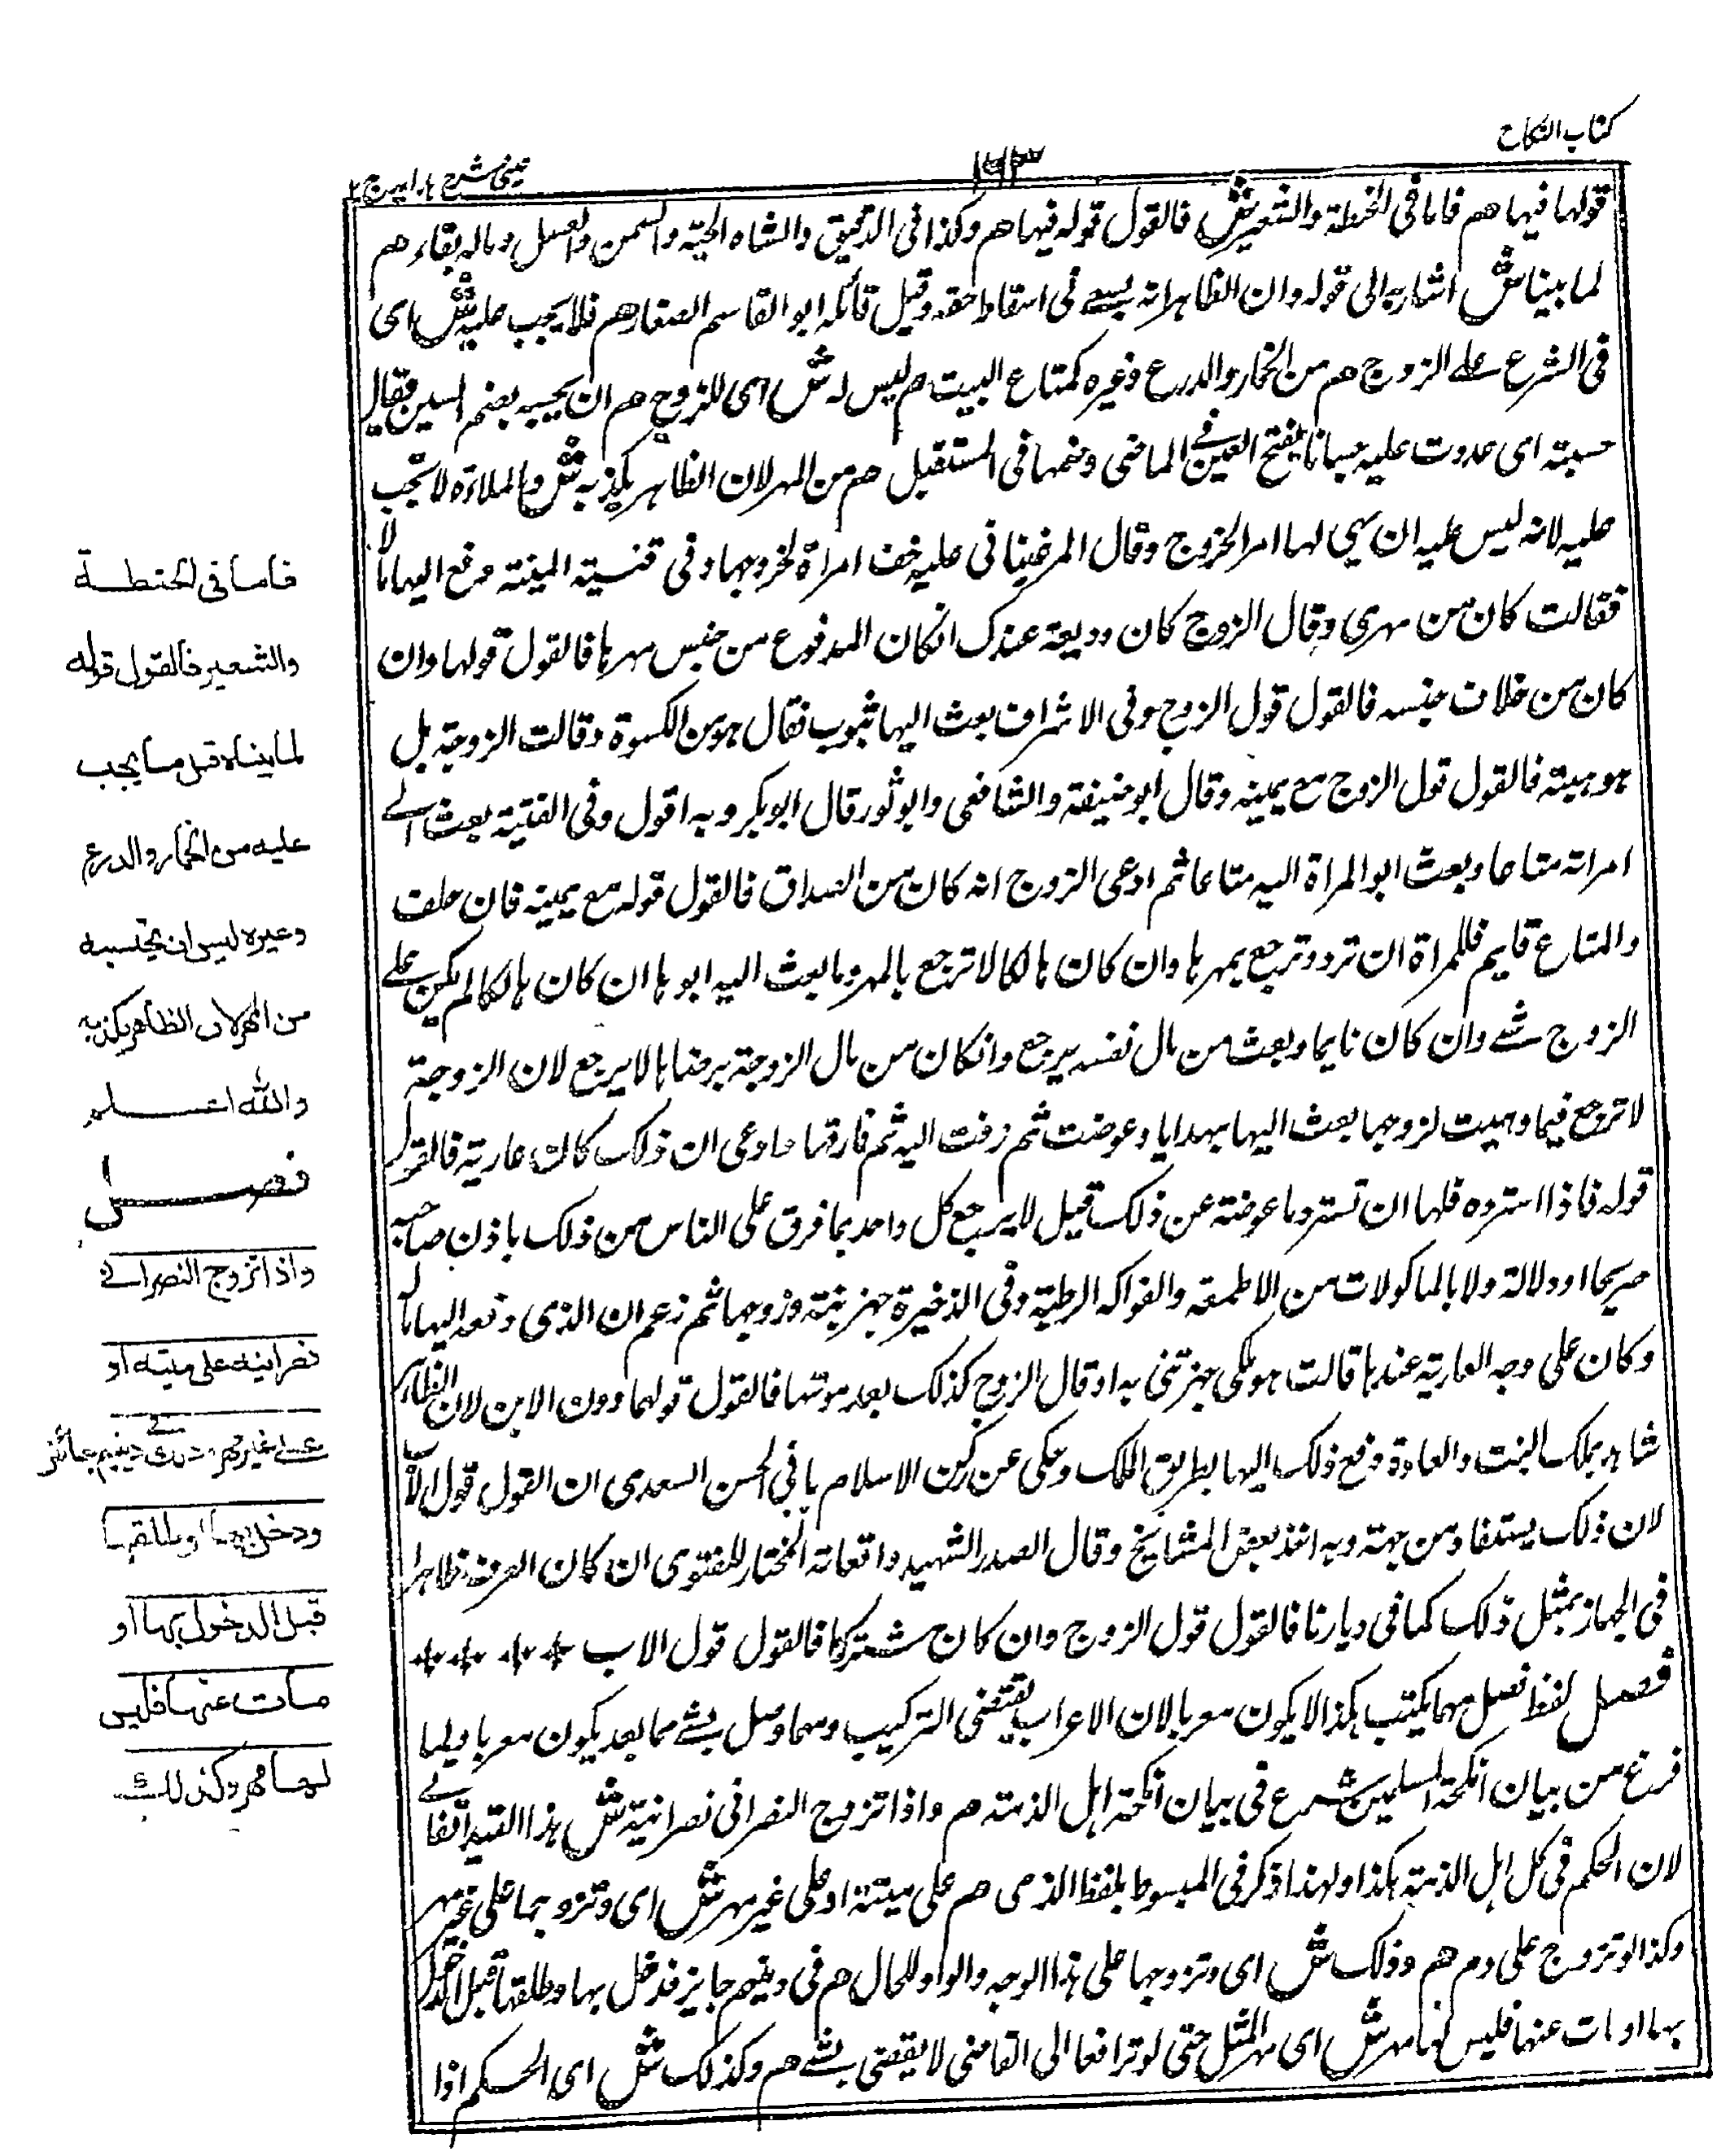 كتاب النكاح
١٤٣
عينى شرح هدايه ج ٢
قولها فيها هم فاما فى الحنطة والشعير ش فالقول قوله فيها هم وكذا فى الدقيق والشاه الحية والسمن والعسل وماله بقاء هم
لما بينا ش اشار به الى قوله وان الظاهر انه يسعے فى اسقاط حقه وقيل قائله ابو القاسم الصغار هم فلا يجب عليه ش اى
فى الشرع علے الزوج هم من الخمار والدرع وغيره كمتاع البيت م ليس له ش اى للزوج هم ان يحسبه بضم السين يقال
حسبته اى عددت عليه حسبانا بفتح العين فے الماضى وضمها فى المستقبل هم من المهر لان الظاهر يكذبه ش والملاءة لا تجب
عليه لانه ليس عليه ان يهيى لها امر الخروج وقال المرغينانى عليه خف امراة لخروجها وفى قنسية المنية دفع اليها مالا
فقالت كان من مهرى وقال الزوج كان وديعة عندك انكان المدفوع من جنس مهرها فالقول قولها وان
كان من خلاف جنسه فالقول قول الزوج وفى الاشراف بعث اليها ثبوب فقال هو من الكسوة وقالت الزوجة بل
هو هبته فالقول قول الزوج مع يمينه وقال ابو حنيفة والشافعى وابو ثور قال ابو بكر وبه اقول وفى القنية بعث الے
امراته متاعا وبعث ابو المراة اليه متاعا ثم ادعى الزوج انه كان من الصداق فالقول قوله مع يمينه فان حلف
والمتاع قايم فللمراة ان ترد وترجع بمهرها وان كان هالكا لا ترجع بالمهر وما بعث اليه ابوها ان كان هالكا لم يكن علے
الزوج شے وان كان نايما وبعث من مال نفسه يرجع وانكان من مال الزوجة برضاها لا يرجع لان الزوجة
لا ترجع فيما وهبت لزوجها بعث اليها بهدايا وعوضت ثم زفت اليه ثم فارقها وادعى ان ذلك كان عارية فالقول
قوله فاذا استرده فلها ان تسترد ما عوضته عن ذلك قيل لا يرجع كل واحد بما فرق على الناس من ذلك باذن صاحبه
صريحا او دلالة ولا بالماكولات من الاطمعة والفواكه الرطبة وفى الذخيرة جهز بنته وزوجها ثم زعم ان الذى دفعه اليها ما
وكان على وجه العارية عندها قالت هو ملكى جهزتنى به او قال الزوج كذلك بعد موتها فالقول قولهما دون الابن لان الظاهر
شاهد بملك البنت والعادة دفع ذلك اليها بطريق الملك وحكى عن ركن الاسلام بافى الحسن السعدى ان القول قول الاب
لان ذلك يستفاد من جهته وبه اخذ بعض المشايخ وقال الصدر الشهيد واقعاته المختار للفتوى ان كان العرف ظاهرا
فى الجهاز بمثل ذلك كما فى ديارنا فالقول قول الزوج وان كان مشتركا فالقول قول الاب
فصل لفظ فصل مهما يكتب هكذا لا يكون معربا لان الاعراب يقتضى التركيب ومهما وصل بشے مما بعد يكون معربا ولما
فرغ من بيان انكحة المسلمين شرع فى بيان انكحة اهل الذمته هم واذا تزوج النصرانى نصرانية ش هذا القيد اتفاقے
لان الحكم فى كل اهل الذمة هكذا ولهذا ذكر فى المبسوط بلفظ الذمى هم على ميتة او على غير مهر ش اى وتزوجها على غير مهر
وكذا لو تزوج على دم هم وذلك ش اى وتزوجها على هذا الوجه والواو للحال هم فى دينهم جايز فدخل بها وطلقها قبل الدخول
بها او مات عنها فليس لها مهر ش اى مهر المثل حتى لو ترافعا الى القاضى لا يقضى بشے هم وكذلك ش اى الحكم اذا
فاما فى الحنطة
والشعير فالقول قوله
لما بيناه وقيل ما يجب
عليه من الخمار والدرع
وغيره ليس ان يحتسبه
من المهر لان الظاهر يكذبه
والله اعلم
فصل
واذا تزوج النصرانے
نصرانية على ميتة او
علے غير مهر وذلك فے دينهم جائز
ودخل بها او طلقها
قبل الدخول بها او
مات عنها فليس
لها مهر وكذلك